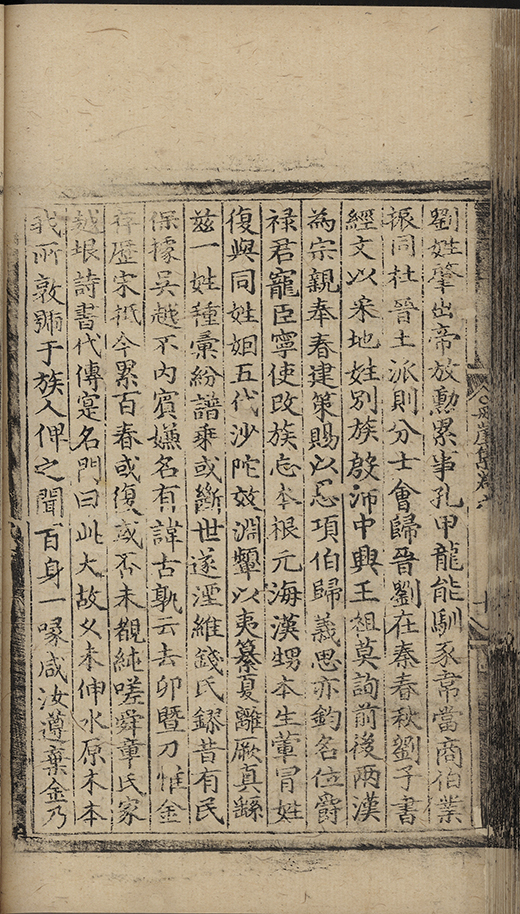 劉姓肇出帝放勳累事孔甲龍能馴豕韋當商伯業
振同杜晉土派則分士會歸晉劉在秦春秋劉子書
經文以采地姓別族殷沛中興王祖莫詢前後兩漢
為宗親奉春建策賜以恩項伯歸義恩亦鈞名位爵
祿君寵臣寧使改族忘本根元海漢甥本生葷冒姓
復與同姓姻五代沙陀效淵顰以夷纂夏離厥真繇
茲一姓種彙紛譜乘或斷世遂湮維錢氏鏐昔有民
保據吳越不內賓嫌名有諱古孰云去卯暨刀惟金
存歷宋抵今累百春或復或否未覩純嗟舜章氏家
越垠詩書代傳寔名門曰此大故父本伸水原木本
我所敦號于族人俾之聞百身一喙咸汝遵棄金乃